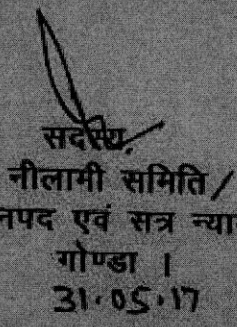 सदस्य,
नीलामी समिति /
नपद एवं सत्र न्या
गोण्डा ।
31.05.17